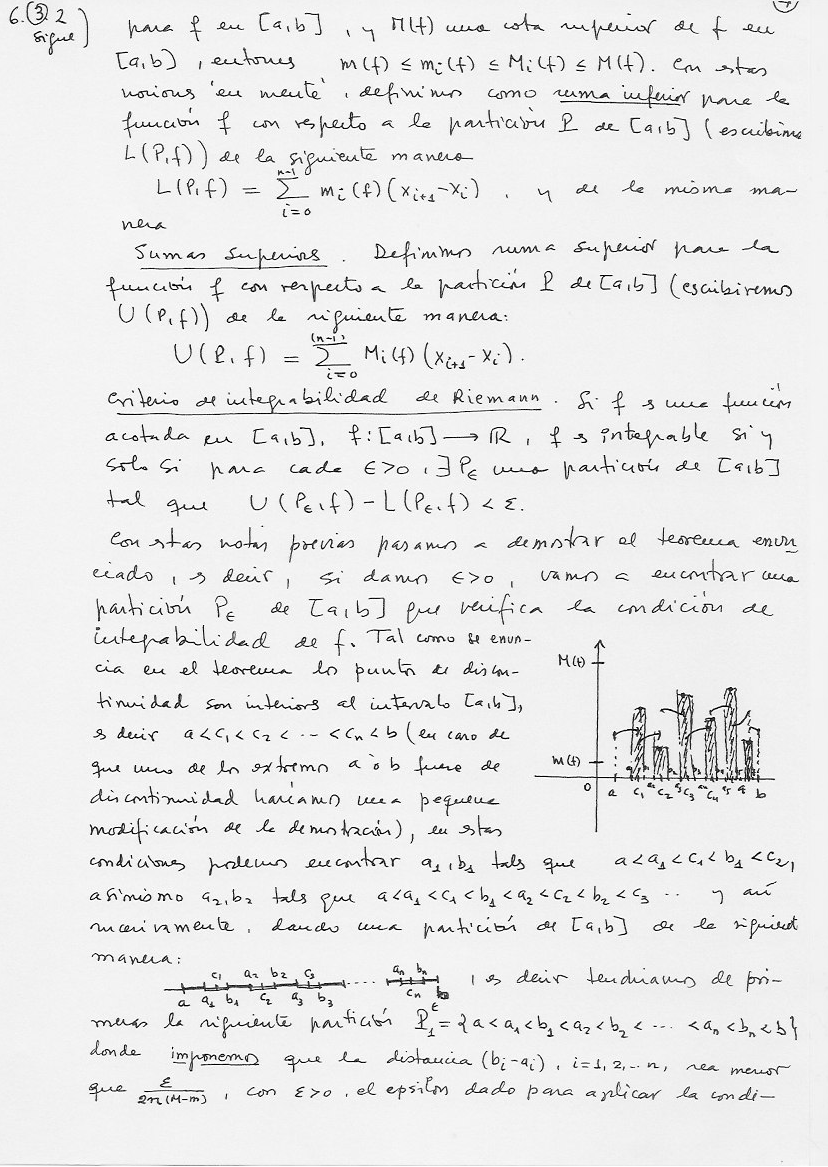 6.③.2
sigue)
para f en [a,b], y M(f) una cota superior de f en
[a,b], entonces m(f) ≤ mi(f) ≤ Mi(f) ≤ M(f). Con estas
nociones 'en mente', definimos como suma inferior para la
función f con respecto a la partición P de [a,b] (escribimos
L(P,f)) de la siguiente manera
L(P,f) = Σ_{i=0}^{n-1} mi(f)(x_{i+1}-x_i), y de la misma ma-
nera
Sumas superiores. Definimos suma superior para la
función f con respecto a la partición P de [a,b] (escribiremos
U(P,f)) de la siguiente manera:
U(P,f) = Σ_{i=0}^{(n-1)} Mi(f)(x_{i+1}-x_i).
Criterio de integrabilidad de Riemann. Si f es una función
acotada en [a,b], f:[a,b]→ℝ, f es integrable si y
solo si para cada ε>0, ∃Pε una partición de [a,b]
tal que U(Pε,f)-L(Pε,f) < ε.
Con estas notas previas pasamos a demostrar el teorema enun
ciado, es decir, si damos ε>0, vamos a encontrar una
partición Pε de [a,b] que verifica la condición de
integrabilidad de f. Tal como se enun-
cia en el teorema los puntos de discon-
tinuidad son interiores al intervalo [a,b],
es decir a<c1<c2<···<cn<b (en caso de
que uno de los extremos a ó b fuera de
discontinuidad haríamos una pequeña
modificación de la demostración), en estas
M(f)
m(f)
0 a c1 c2 c3 c4 b
condiciones podemos encontrar a1,b1 tales que a<a1<c1<b1<c2,
asimismo a2,b2 tales que a<a1<c1<b1<a2<c2<b2<c3 ·· y así
sucesivamente, dando una partición de [a,b] de la siguiente
manera:
a a1 c1 b1 a2 c2 b2 a3 c3 b3 ···· an cn bn b , es decir tendríamos de pri-
meras la siguiente partición P1^ε={a<a1<b1<a2<b2<···<an<bn<b}
donde imponemos que la distancia (bi-ai), i=1,2,..n, sea menor
que ε/2n(M-m), con ε>0, el epsilon dado para aplicar la condi-